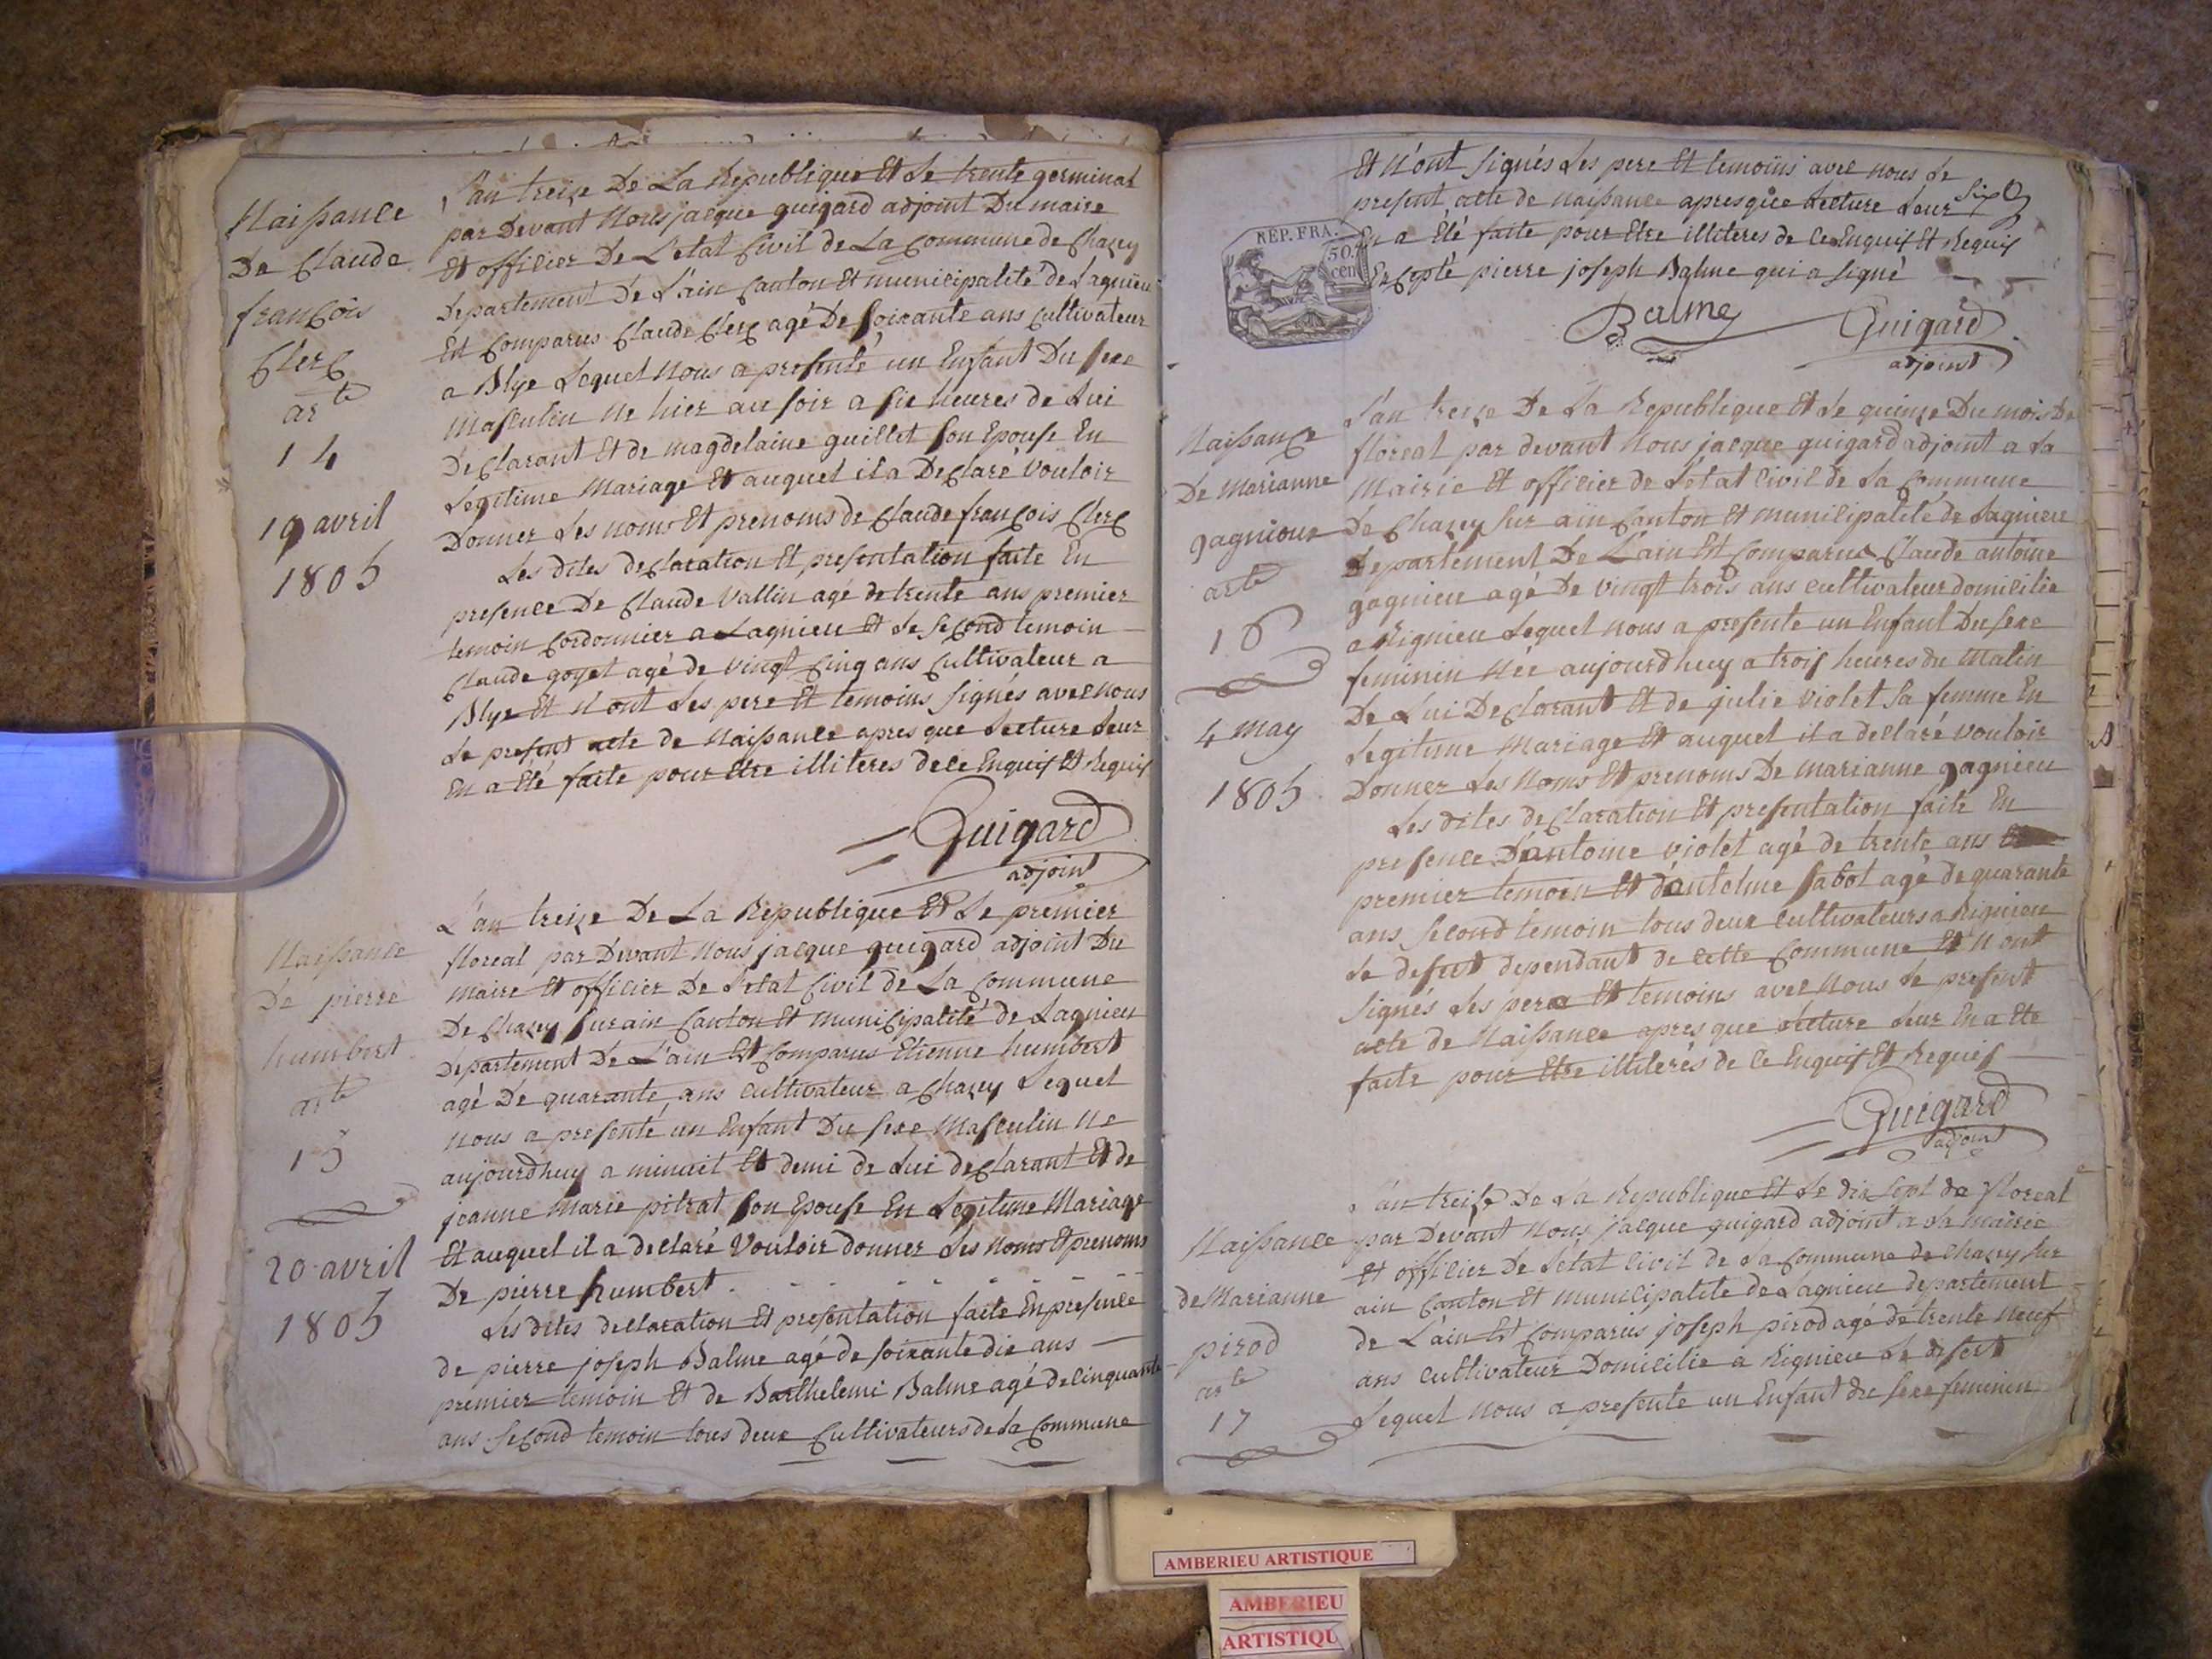 Naissance
De Claude
françois
Clerc
arte
14
19 avril
1805
L'an treize De La Republique Et Le trente germinal
par Devant Nous jacque guigard adjoint Du maire
Et officier De L'etat Civil de La Commune de Chazey
Departement De L'ain Canton Et municipalité de Lagnieu
Est Comparus Claude Clerc agé De soixante ans Cultivateur
a Blye Lequel Nous a presenté un Enfant Du sexe
Masculin Ne hier au soir a six heures de Lui
Declarant Et de magdelaine guillet son Epouse En
Legitime Mariage Et auquel il a Declaré Vouloir
Donner Les noms Et prenoms de Claude françois Clerc
Les dites declaration Et presentation faite En
presence De Claude Vallin agé de trente ans premier
temoin Cordonnier a Lagnieu Et de second temoin
Claude goyet agé de Vingt Cinq ans Cultivateur a
Blye Et N'ont Les pere Et temoins signés avec Nous
Le present acte de Naissance apres que Lecture Leur
En a Eté faite pour Etre illiteres de ce Enquis Et Requis
Guigard
adjoint
Naissance
De pierre
humbert
arte
15
20 avril
1805
L'an treize De La Republique Et Le premier
floreal par Devant Nous jacque guigard adjoint Du
maire Et officier De L'etat Civil de La Commune
De Chazey sur ain Canton Et municipalité de Lagnieu
Departement De L'ain Est Comparus Etienne humbert
agé De quarante ans Cultivateur a Chazey Lequel
Nous a presenté un Enfant Du sexe Masculin Ne
aujourdhuy a minuit Et demi de Lui declarant Et de
jeanne Marie pitrat son Epouse En Legitime Mariage
Et auquel il a declaré Vouloir donner Les Noms Et prenoms
De pierre humbert
Les dites declaration Et presentation faite En presence
de pierre joseph Balme agé de soixante dix ans
premier temoin Et de Barthelemi Balme agé de Cinquante
ans second temoin tous deux Cultivateurs de La Commune
Et N'ont signés Les pere Et temoins avec nous Le
present acte de Naissance apres que Lecture Leur
En a Eté faite pour Etre illiteres de ce Enquis Et Requis
Excepté pierre joseph Balme qui a signé
REP. FRA.
50.
cen
Balme
Guigard
adjoint
Naissance
De Marianne
gagnieur
arte
16
4 may
1805
L'an treize De La Republique Et Le quinze Du mois De
floreal par devant Nous jacque guigard adjoint a La
Mairie Et officier de L'etat Civil de La Commune
De Chazey sur ain Canton Et municipalité de Lagnieu
Departement De L'ain Est Comparus Claude antoine
gagnieu agé De vingt trois ans cultivateur domicilie
a Rignieu Lequel nous a presente un Enfant Du sexe
feminin Née aujourdhuy a trois heures du Matin
De Lui Declarant Et de julie Violet sa femme En
Legitime Mariage Et auquel il a declaré vouloir
Donner Les Noms Et prenoms De Marianne gagnieu
Les dites declaration Et presentation faite En
presence D'antoine violet agé de trente ans
premier temoin Et d'antelme sabot agé de quarante
ans second temoin tous deux cultivateurs a Rignieu
Le desert dependant de cette Commune Et N'ont
signés Les pere Et temoins avec Nous Le present
acte de Naissance apres que Lecture Leur En a Ete
faite pour Etre illiterés de Ce Enquis Et Requis
Guigard
adjoint
Naissance
de Marianne
pirod
arte
17
L'an treize De La Republique Et Le dix sept de floreal
par Devant Nous jacque guigard adjoint a La mairie
Et officier De L'etat Civil de La Commune de Chazey sur
ain Canton Et municipalite de Lagnieu departement
de L'ain Est Comparus joseph pirod agé de trente neuf
ans cultivateur Domicilie a Rignieu Le desert
Lequel Nous a presente un Enfant du sexe feminin
AMBERIEU ARTISTIQUE
AMBERIEU
ARTISTIQU